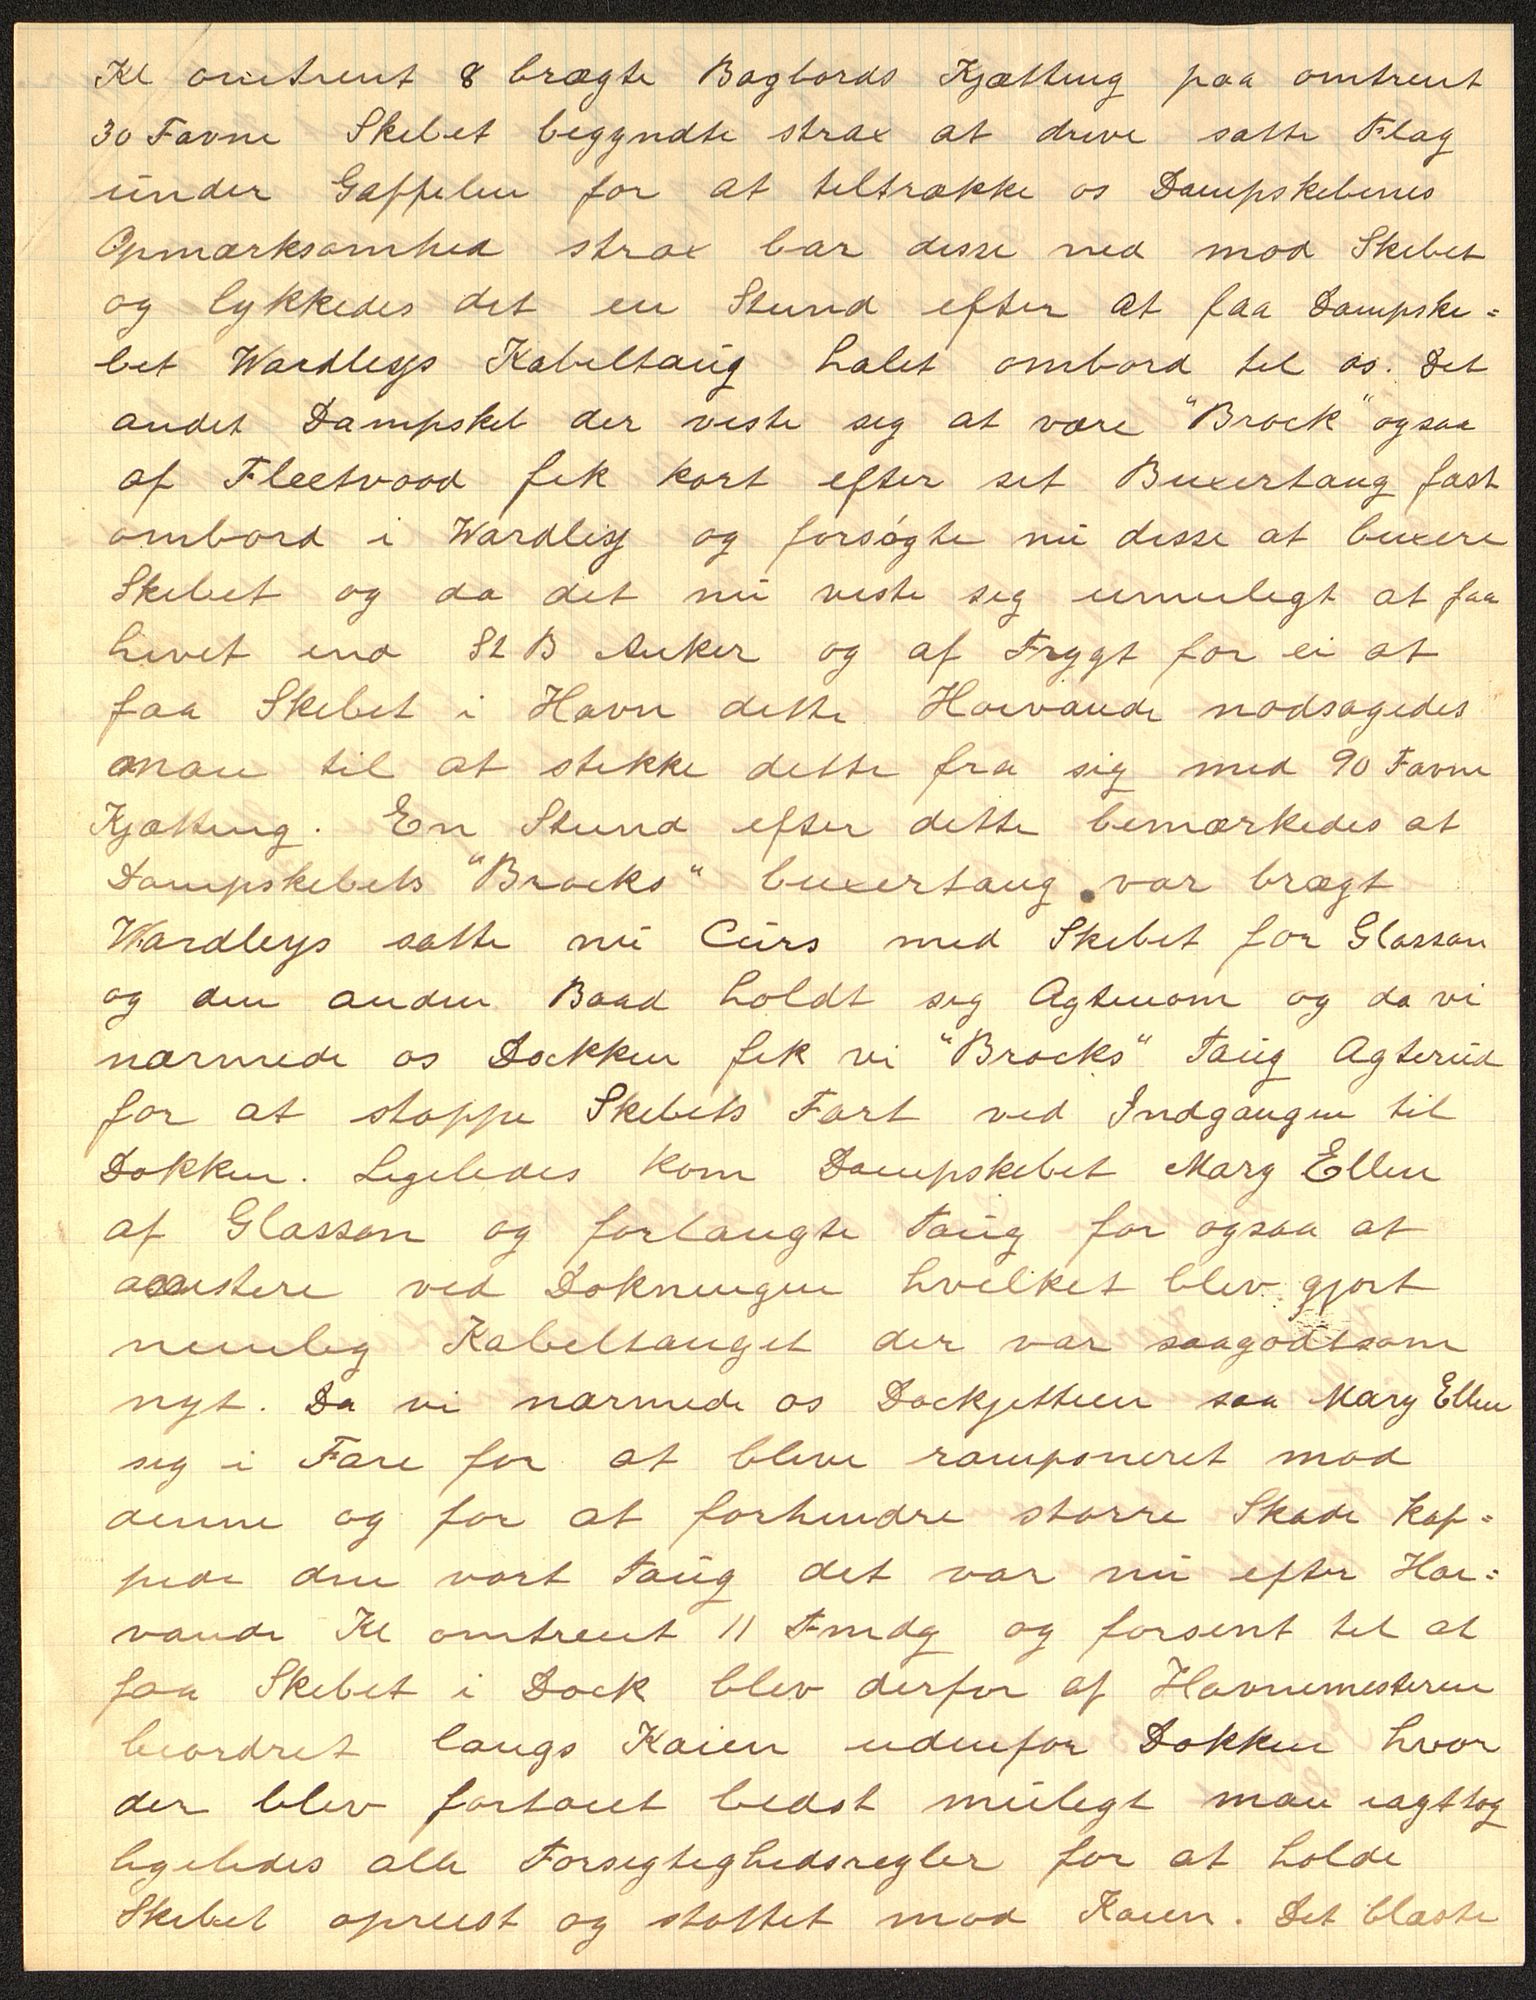 Kl omtrent 8 brægte Bagbords Kjætting paa omtrent
30 Favne Skibet begyndte strax at drive satte Flag
under Gaffelen for at tiltrække os Dampskibenes
Opmærksomhed strax bar disse ned mod Skibet
og lykkedes det en Stund efter at faa Dampski=
bet Wardleys Kabeltaug halet ombord til os. Det
andet Dampskib der viste sig at være "Brock" ogsaa
af Fleetvood fik kort efter sit Buxertaug fast
ombord i Wardley og forsøgte nu disse at buxere
Skibet og da det nu viste sig umuligt at faa
hivet ind St B Anker og af Frygt for ei at
faa Skibet i Havn dette Høivande nødsagedes
man til at stikke dette fra sig med 90 Favne
Kjætting. En Stund efter dette bemærkedes at
Dampskibets "Brocks" buxertaug var brægt
Wardleys satte nu Curs med Skibet for Glasson
og den anden Baad holdt sig Agtenom og da vi
nærmede os Dokken fik vi "Brocks" Taug Agterud
for at stoppe Skibets Fart ved Indgangen til
Dokken. Ligeledes kom Dampskibet Mary Ellen
af Glasson og forlangte Taug for ogsaa at
assistere ved Dokningen hvilket blev gjort
nemlig Kabeltauget der var saagodtsom
nyt. Da vi nærmede os Dockjettien saa Mary Ellen
sig i Fare for at blive ramponeret mod
denne og for at forhindre større Skade kap=
pede den vort Taug det var nu efter Høi=
vande Kl omtrent 11 Fmdg og forsent til at
faa Skibet i Dock blev derfor af Havnemesteren
beordret langs Kaien udenfor Dokken hvor
der blev fortøiet bedst muligt man iagttog
ligeledes alle Forsigtighedsregler for at holde
Skibet opreist og støttet mod Kaien. Det blæste